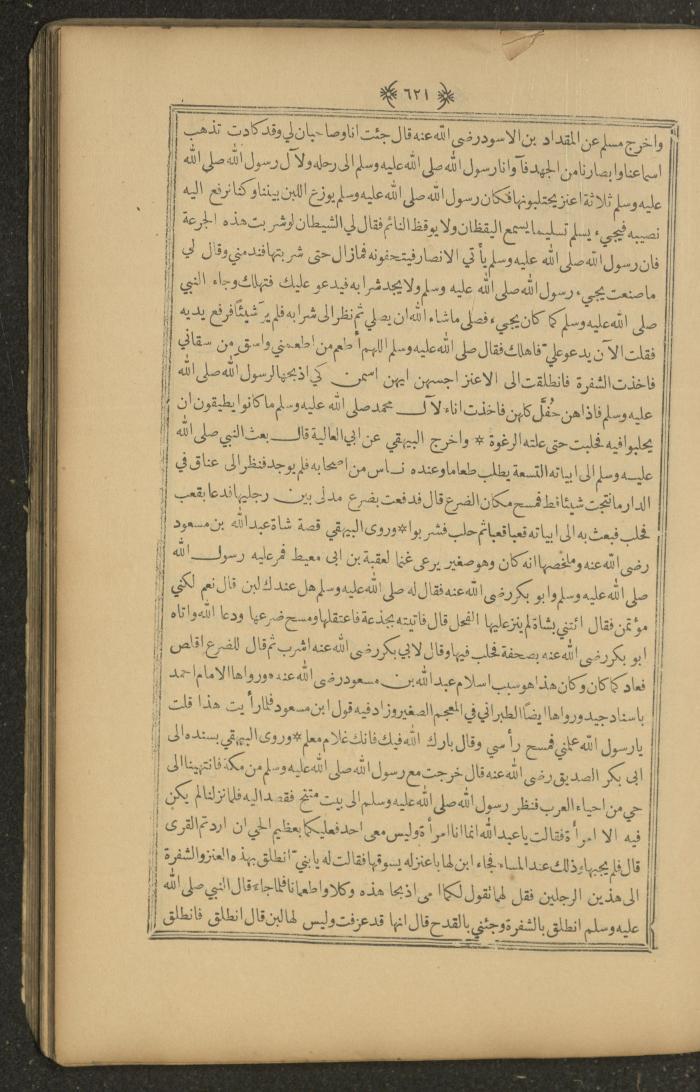 ﴿ ٦٢١ ﴾
واخرج مسلم عن المقداد بن الاسود رضى الله عنه قال جئت انا وصاحبان لي وقد كادت تذهب
اسماعنا وابصارنا من الجهد فآوانا رسول الله صلى الله عليه وسلم الى رحله ولآل رسول الله صلى الله
عليه وسلم ثلاثة اعنز يحتلبونها فكان رسول الله صلى الله عليه وسلم يوزع اللبن بيننا وكنا نرفع اليه
نصيبه فيجيء يسلم تسليما يسمع اليقظان ولا يوقظ النائم فقال لي الشيطان لو شربت هذه الجرعة
فان رسول الله صلى الله عليه وسلم يأتي الانصار فيتحفونه فما زال حتى شربتها فندمني وقال لي
ما صنعت يجيء رسول الله صلى الله عليه وسلم ولا يجد شرابه فيدعو عليك فتهلك وجاء النبي
صلى الله عليه وسلم كما كان يجيء فصلى ما شاء الله ان يصلي ثم نظر الى شرابه فلم ير شيئاً فرفع يديه
فقلت الآن يدعو عليّ فاهلك فقال صلى الله عليه وسلم اللهم أطعم من اطعمني واسق من سقاني
فاخذت الشفرة فانطلقت الى الاعنز اجسهن ايهن اسمن كي اذبحها لرسول الله صلى الله
عليه وسلم فاذا هن حُفَّل كلهن فاخذت اناء لآل محمد صلى الله عليه وسلم ما كانوا يطيقون ان
يحلبوا فيه فحلبت حتى علته الرغوة * واخرج البيهقي عن ابي العالية قال بعث النبي صلى الله
عليه وسلم الى ابياته التسعة يطلب طعاما وعنده ناس من اصحابه فلم يوجد فنظر الى عناق في
الدار ما نتجت شيئا قط فمسح مكان الضرع قال فدفعت بضرع مدلى بين رجليها فدعا بقعب
فحلب فبعث به الى ابياته قعبا قعبا ثم حلب فشربوا * وروى البيهقي قصة شاة عبد الله بن مسعود
رضى الله عنه وملخصها انه كان وهو صغير يرعى غنما لعقبة بن ابى معيط فمر عليه رسول الله
صلى الله عليه وسلم وابو بكر رضى الله عنه فقال له صلى الله عليه وسلم هل عندك لبن قال نعم لكني
مؤتمن فقال ائتني بشاة لم ينز عليها الفحل قال فاتيته بجذعة فاعتقلها ومسح ضرعها ودعا الله واتاه
ابو بكر رضى الله عنه بصحفة فحلب فيها وقال لابي بكر رضى الله عنه اشرب ثم قال للضرع اقلص
فعاد كما كان وكان هذا هو سبب اسلام عبد الله بن مسعود رضى الله عنه ورواها الامام احمد
باسناد جيد ورواها ايضاً الطبراني في المعجم الصغير وزاد فيه قول ابن مسعود فلما رأيت هذا قلت
يا رسول الله علمني فمسح رأسي وقال بارك الله فيك فانك غلام معلم * وروى البيهقي بسنده الى
ابى بكر الصديق رضى الله عنه قال خرجت مع رسول الله صلى الله عليه وسلم من مكة فانتهينا الى
حي من احياء العرب فنظر رسول الله صلى الله عليه وسلم الى بيت متنح فقصد اليه فلما نزلنا لم يكن
فيه الا امرأة فقالت يا عبد الله انما انا امرأة وليس معى احد فعليكما بعظيم الحي ان اردتم القرى
قال فلم يجبها وذلك عند المساء فجاء ابن لها باعنز له يسوقها فقالت له يا بنيّ انطلق بهذه العنز والشفرة
الى هذين الرجلين فقل لهما تقول لكما امى اذبحا هذه وكلا واطعمانا فلما جاء قال النبي صلى الله
عليه وسلم انطلق بالشفرة وجئني بالقدح قال انها قد عزفت وليس لها لبن قال انطلق فانطلق